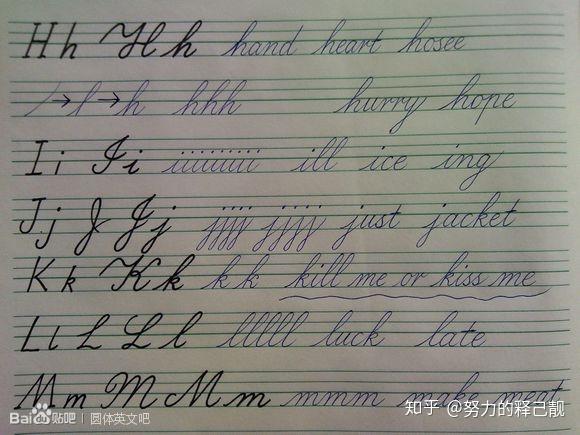 H h H h hand heart hosee
→ l → h hhh hurry hope
I i I i iiiiiiiii ill ice ing
J j J J j jjjj jjjj just jacket
K k K k k k kill me or kiss me
L l L L l lllll luck late
M m M M m mmm make meat
Bai贴吧 | 圆体英文吧
知乎 @努力的释己靓